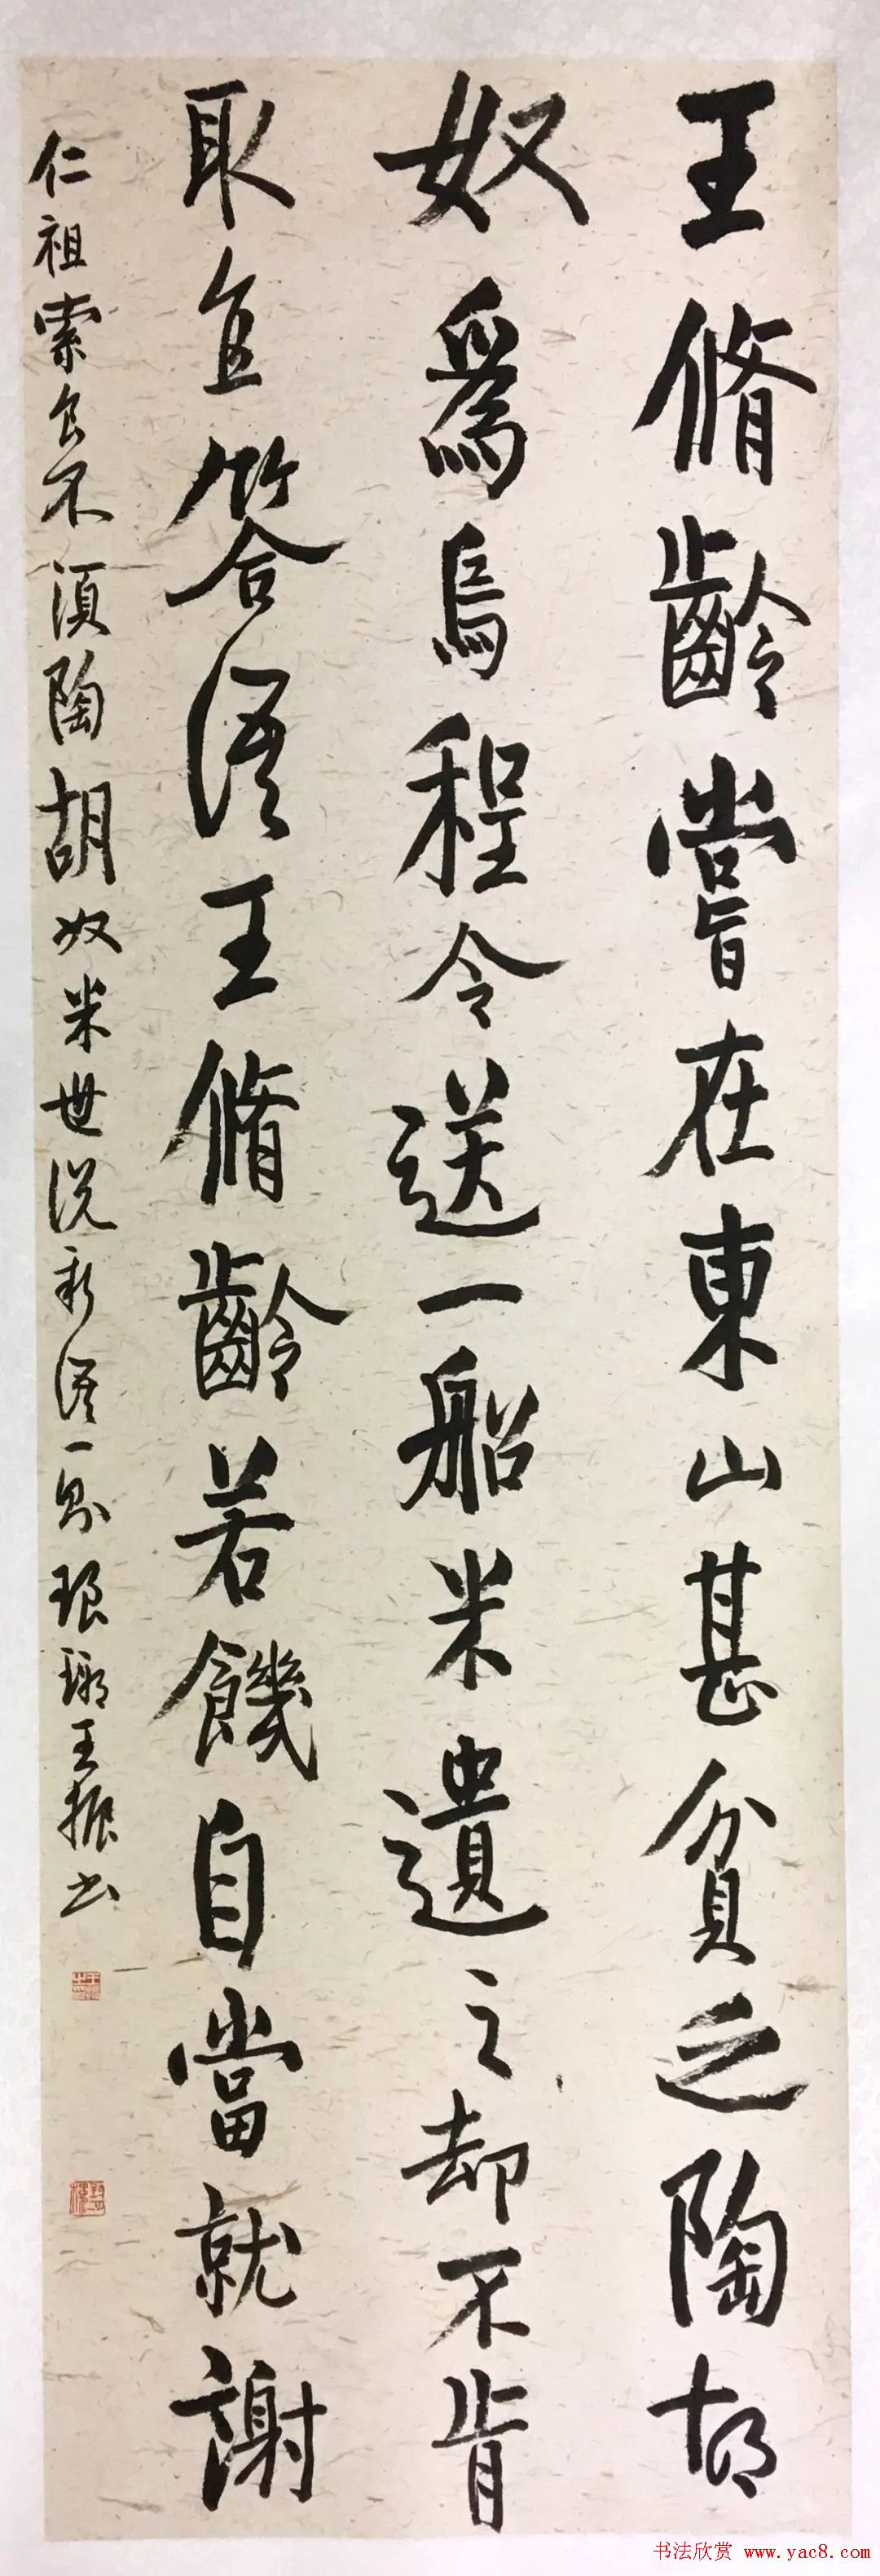 王脩齡嘗在東山甚貧乏陶胡
奴爲烏程令送一船米遺之却不肯
取直答語王脩齡若饑自當就謝
仁祖索食不須陶胡奴米世説新語一則琅琊王振书
书法欣赏 www.yac8.com